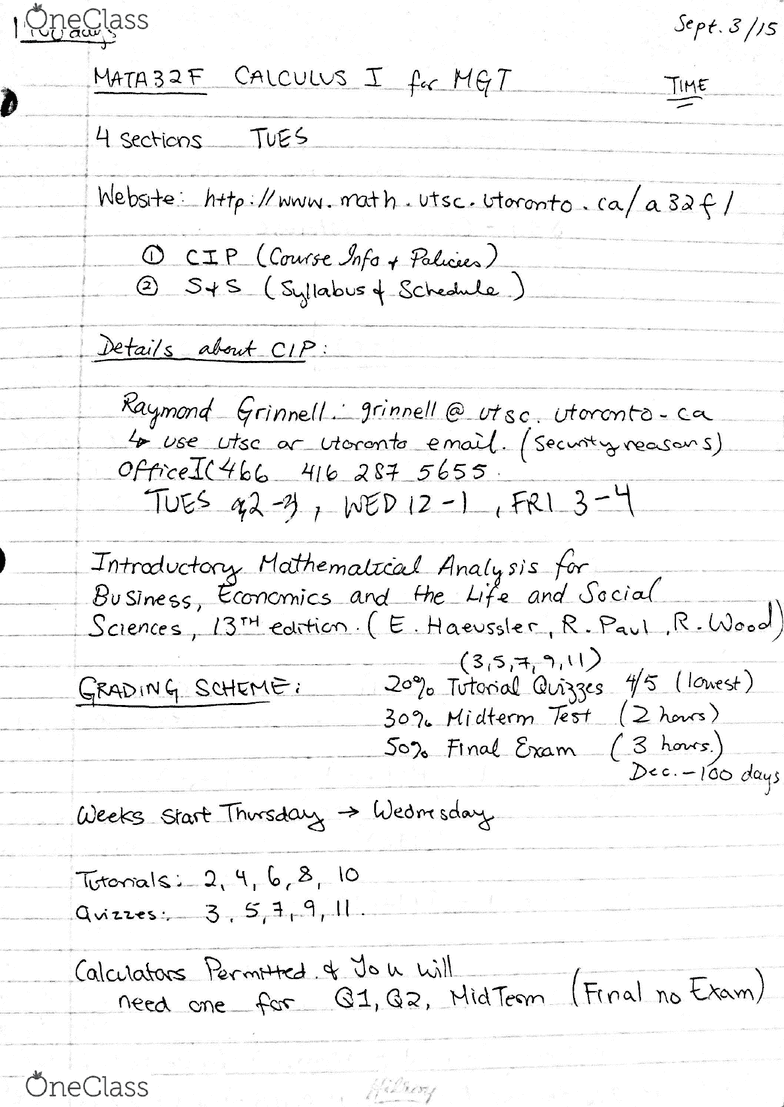 OneClass
Sept. 3/15
100 days
MATA32F CALCULUS I for MGT
TIME
4 sections TUES
Website: http://www.math.utsc.utoronto.ca/a32f/
① CIP (Course Info & Policies)
② S&S (Syllabus & Schedule)
Details about CIP:
Raymond Grinnell: grinnell@utsc.utoronto.ca
↳ use utsc or utoronto email. (Security reasons)
Office IC466 416 287 5655.
TUES 2-3, WED 12-1, FRI 3-4
Introductory Mathematical Analysis for
Business, Economics and the Life and Social
Sciences, 13TH edition. (E. Haeussler, R. Paul, R. Wood)
(3,5,7,9,11)
GRADING SCHEME: 20% Tutorial Quizzes 4/5 (lowest)
30% Midterm Test (2 hours)
50% Final Exam (3 hours.)
Dec. - 100 days
Weeks start Thursday → Wednesday
Tutorials: 2, 4, 6, 8, 10
Quizzes: 3, 5, 7, 9, 11.
Calculators Permitted & You will
need one for Q1, Q2, MidTerm (Final no Exam)
OneClass
Hilroy